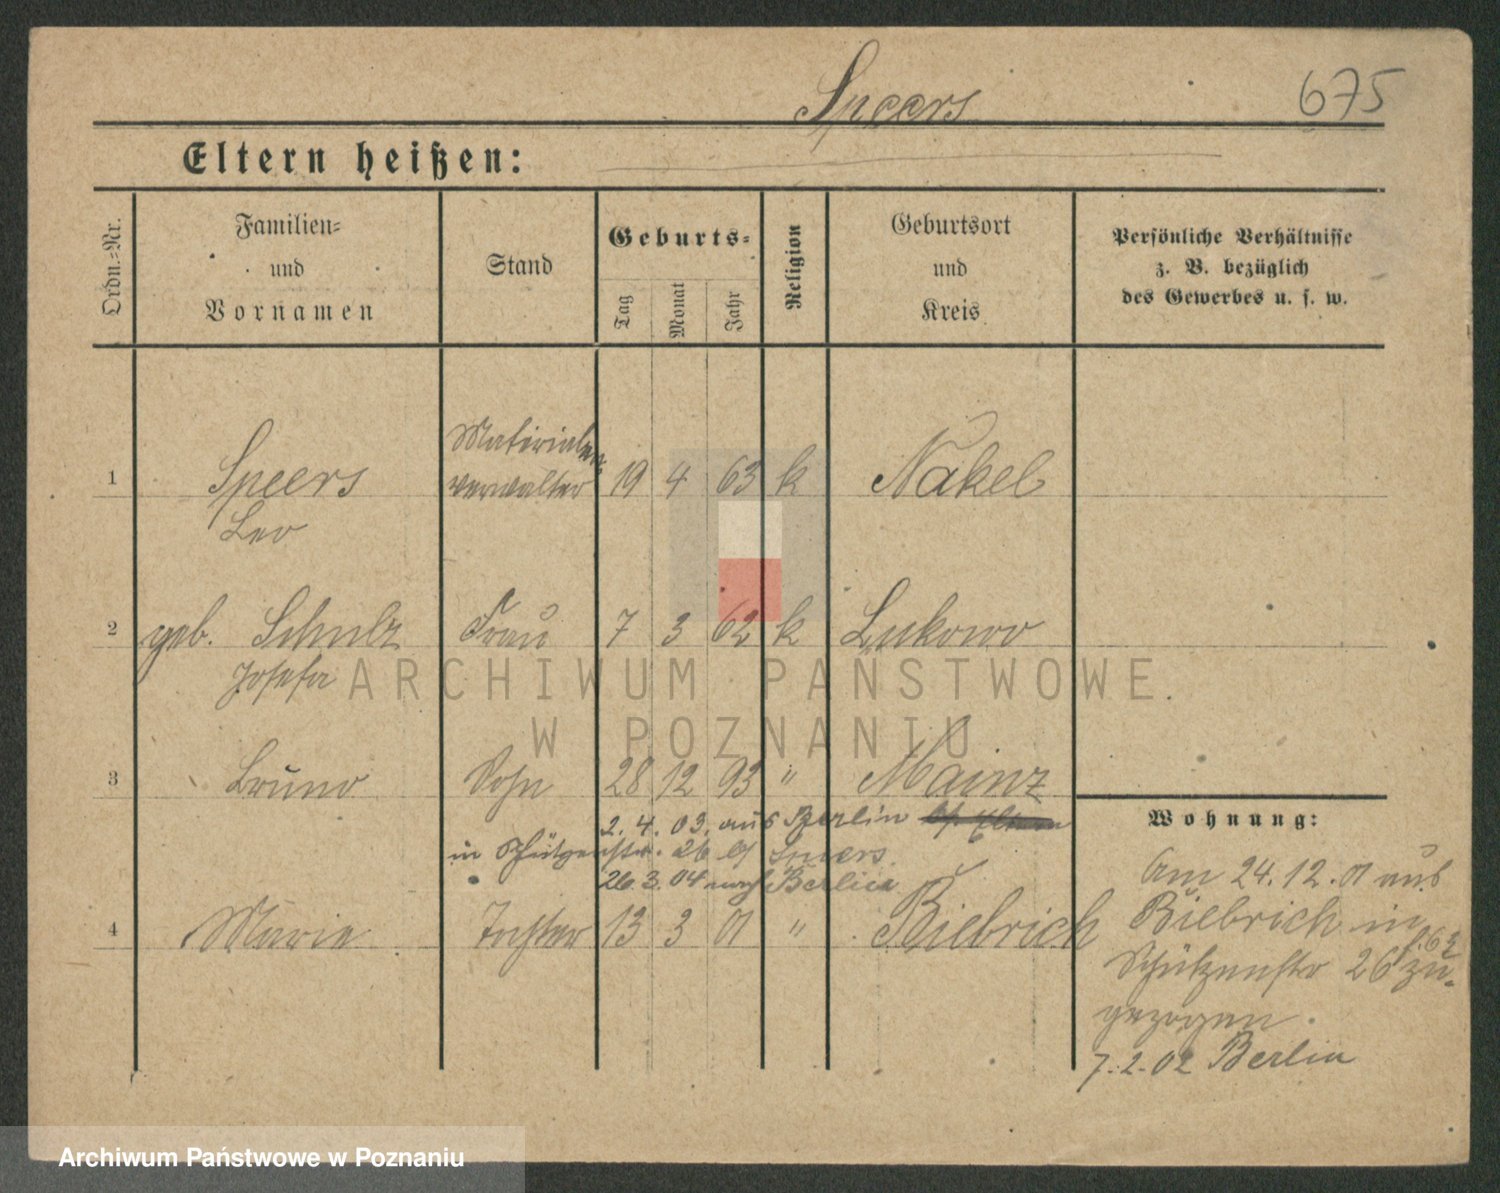 Speers
675
Eltern heißen:
Ordn.-Nr.
Familien-
und
Vornamen
Stand
Geburts-
Tag
Monat
Jahr
Religion
Geburtsort
und
Kreis
Persönliche Verhältnisse
z. B. bezüglich
des Gewerbes u. s. w.
Materialen
1 Speers verwalter 19 4 63 k Nakel
Leo
2 geb. Schulz Frau 7 3 62 k Lukowo
Josefa
ARCHIWUM PAŃSTWOWE
W POZNANIU
3 Bruno Sohn 28 12 93 " Mainz
2. 4. 03. aus Berlin
in Schützenstr. 26 b/ Speers
26. 3. 04 nach Berlin
4 Marie Tochter 13 3 01 " Biebrich
Wohnung:
Am 24. 12. 01 aus
Biebrich in
Schützenstr 26 zu-
gezogen.
7. 2. 02 Berlin
Archiwum Państwowe w Poznaniu